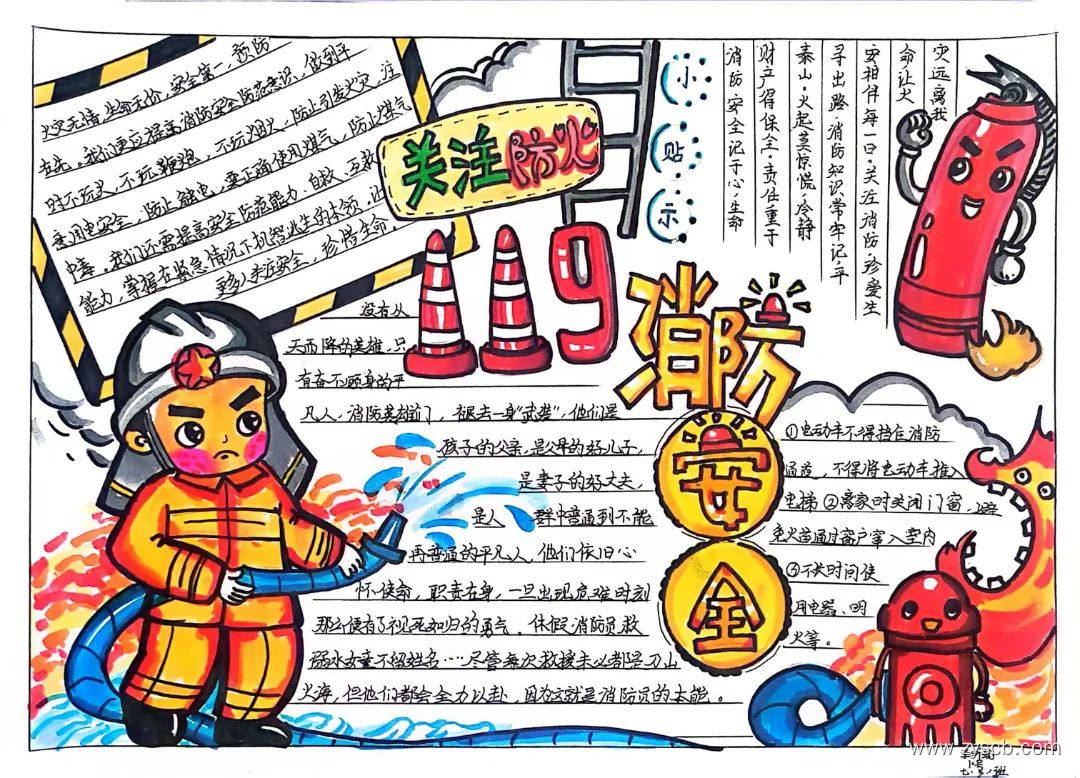 火灾无情，生命无价，安全第一，预防
在先。我们更应提高消防安全防范意识，做到平
时不玩火，不玩鞭炮，不玩烟火，防止引发火灾，注
意用电安全，防止触电，要正确使用煤气，防止煤气
中毒。我们还需提高安全防范能力、自救、互救
能力，掌握在紧急情况下机智逃生的本领，让
更多人关注安全，珍惜生命。
关注防火
小贴示
消防安全记于心·生命
财产得保全·责任重于
泰山·火起莫惊慌·冷静
寻出路·消防知识常牢记·平
安相伴每一日·关注消防·珍爱生
命让火
灾远离我
119
消防
安
全
没有从
天而降的英雄，只
有奋不顾身的平
凡人，消防英雄们，褪去一身“武装”，他们是
孩子的父亲，是父母的好儿子，
是妻子的好丈夫，
是人群中普通到不能
再普通的平凡人，他们依旧心
怀使命，职责在身，一旦出现危难时刻
那么便有了视死如归的勇气。休假消防员救
溺水女童不留姓名……尽管每次救援未必都是刀山
火海，但他们都会全力以赴，因为这就是消防员的本能。
①电动车不得挡住消防
通道，不得将电动车推入
电梯②离家时关闭门窗，避
免火苗通过窗户窜入室内
③不长时间使
用电器、明
火等。
www.zyscb.com